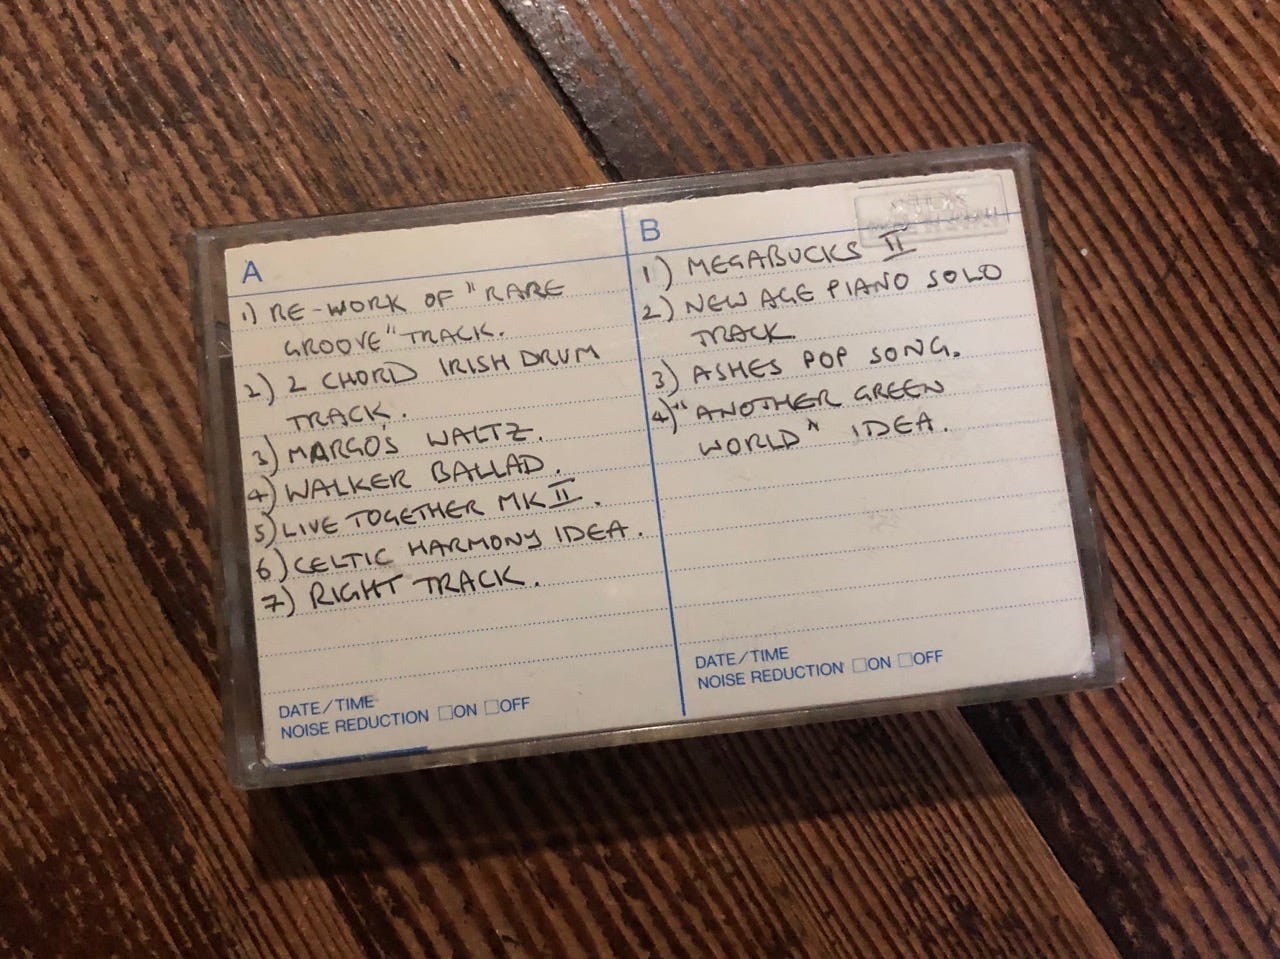 A
1) RE-WORK OF "RARE
GROOVE" TRACK.
2) 2 CHORD IRISH DRUM
TRACK.
3) MARGO'S WALTZ.
4) WALKER BALLAD.
5) LIVE TOGETHER MK II.
6) CELTIC HARMONY IDEA.
7) RIGHT TRACK.
DATE/TIME
NOISE REDUCTION □ON □OFF
B
1) MEGABUCKS II
2) NEW AGE PIANO SOLO
TRACK
3) ASHES POP SONG.
4) "ANOTHER GREEN
WORLD" IDEA.
DATE/TIME
NOISE REDUCTION □ON □OFF